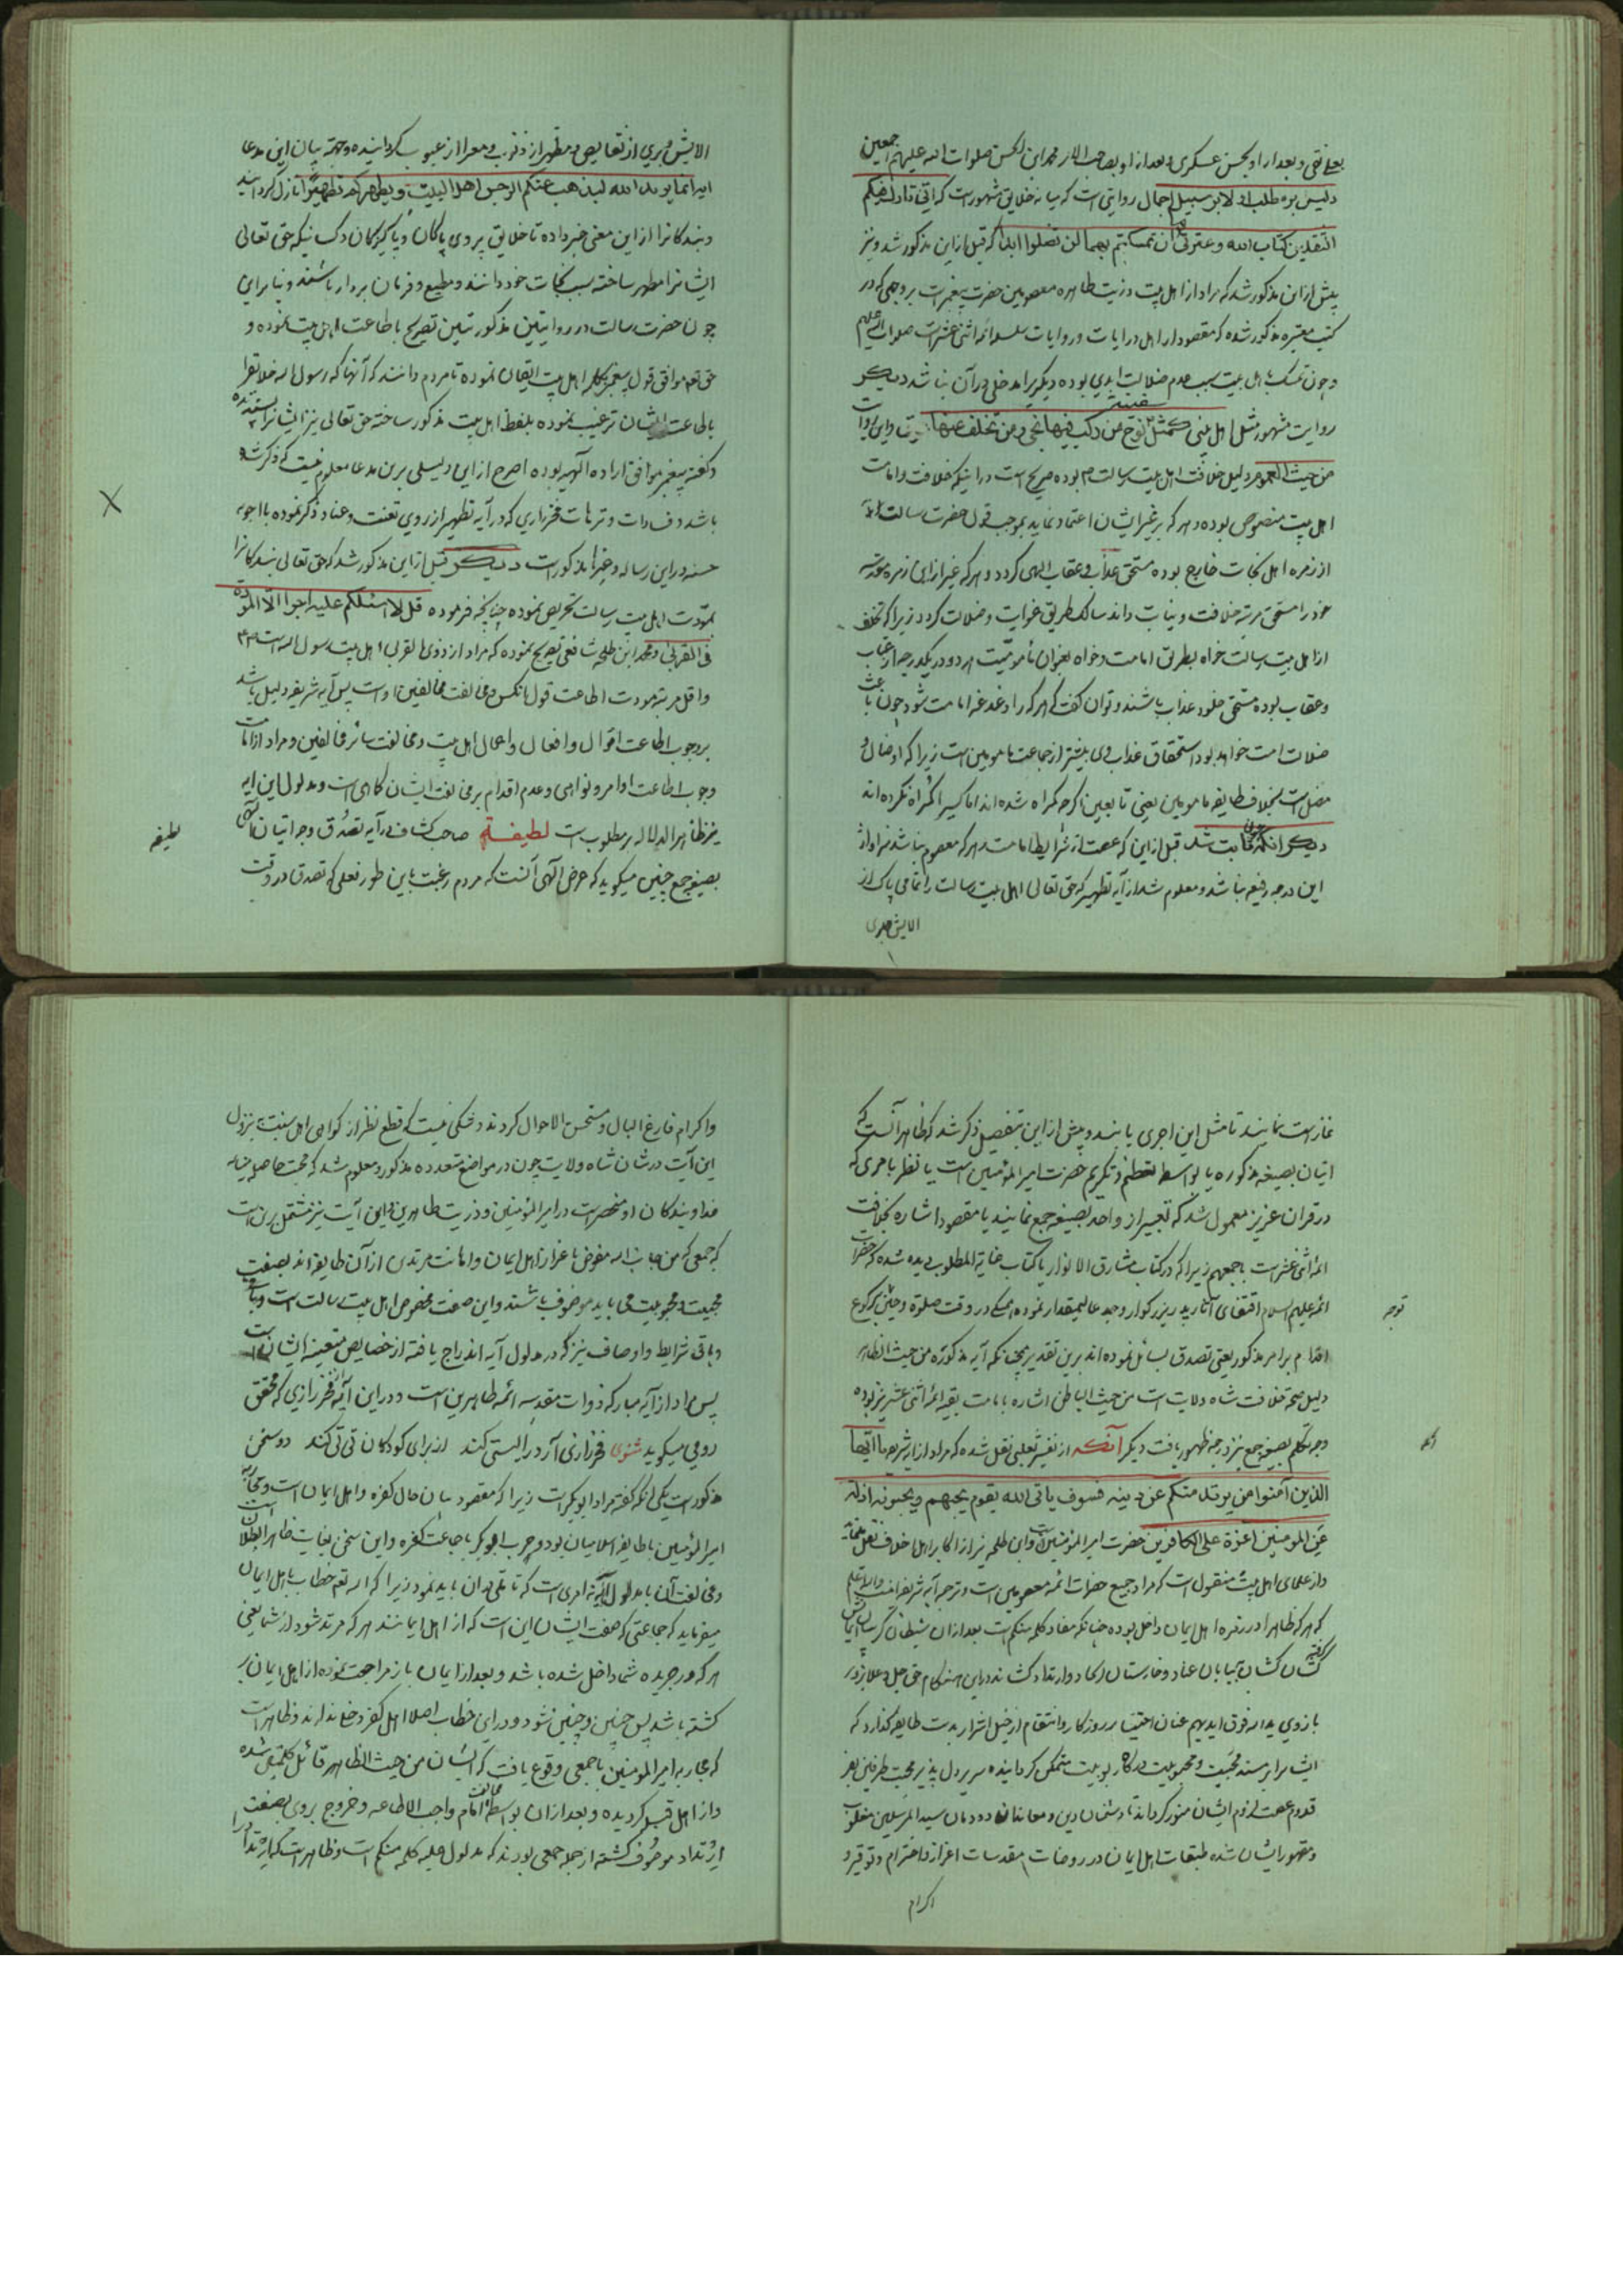 بعلی نقی و بعد از او بحسن عسکری و بعد از او بصاحب الامر محمد ابن الحسن صلوات الله علیهم اجمعین
دلیل برین مطلب اولا بر سبیل اجمال روایتی است که میانه خلایق مشهور است که انی تارک فیکم
الثقلین کتاب الله و عترتی ان تمسکتم بهما لن تضلوا ابدا که قبل ازین مذکور شد و نیز
پیش ازین مذکور شد که مراد از اهل بیت و ذریت طاهره معصومین حضرت پیغمبر است بر وجهی که در
کتب معتبره مذکور شده که مقصود از اهل در آیات و روایات سلسله ائمه اثنی عشر است صلوات الله علیهم
و چون تمسک باهل بیت سبب عدم ضلالت ابدی بوده دیگریرا مدخلی در آن نباشد دیگر
روایت مشهور مثل اهل بیتی کمثل سفینة نوح من رکب فیها نجی و من تخلف عنها
من حیث العموم دلیل خلافت اهل بیت رسالت بوده صریح است در اینکه خلافت و امامت
اهل بیت منصوص بوده و هر که بر غیر ایشان اعتماد نماید بموجب قول حضرت رسالت
از زمره اهل نجات خارج بوده مستحق عذاب و عقاب الهی گردد و هر که غیر از این زمره مقدسه
خود را مستحق مرتبه خلافت و نیابت داند سالک طریق غوایت و ضلالت گردد زیرا که تخلف
از اهل بیت رسالت خواه بطریق امامت و خواه بعنوان مأمومیت هر دو در یک درجه از عتاب
و عقاب بوده مستحق خلود عذاب باشند و توان گفت که هر که را دغدغه امامت شود چون باعث
ضلالت امت خواهد بود استحقاق عذاب وی بیشتر از جماعت مأمومین است زیرا که او ضال و
مضل است بخلاف طایفه مأمومین یعنی تابعین اگرچه گمراه شده‌اند اما کسیرا گمراه نکرده‌اند
دیگر آنکه چون ثابت شد قبل ازین که عصمت از شرایط امامت است و هر که معصوم نباشد سزاوار
این درجه رفیعه نباشد و معلوم شد از آیه تطهیر که حق تعالی اهل بیت رسالت را تمامی پاک از
الایش و بری
الایش و بری از نقایص و مطهر از ذنوب و معرا از عیوب گردانیده و جهة بیان این مدعا
ایه انما یرید الله لیذهب عنکم الرجس اهل البیت و یطهرکم تطهیرا نازل گردانید
و بندگانرا از این معنی خبر داده تا خلایق پیروی پاکان و پاکیزگان و کسانیکه حق تعالی
ایشانرا مطهر ساخته سبب نجات خود دانند و مطیع و فرمان بردار باشند و بنابر این
چون حضرت رسالت در روایتین مذکورتین تصریح باطاعت اهل بیت نموده و
حق تعالی موافق قول پیغمبر بکلمه اهل بیت اتیان نموده تا مردم دانند که آنها که رسول الله خلایق را
باطاعت ایشان ترغیب نموده بلفظ اهل بیت مذکور ساخته حق تعالی نیز ایشانرا پسندیده
و گفته پیغمبر موافق اراده الهیه بوده اصرح از این دلیلی برین مدعا معلوم نیست که ذکر شده
باشد و فسادات و ترهات فخر رازی که در آیه تطهیر از روی تعنت و عناد ذکر نموده با اجوبه
حسنه در این رساله و غیرها مذکور است دیگر قبل از این مذکور شد که حق تعالی بندگانرا
بمودت اهل بیت رسالت تحریص نموده چنانچه فرموده قل لا اسئلکم علیه اجرا الا المودة
فی القربی و محمد ابن طلحه شافعی تصریح نموده که مراد از ذوی القربی اهل بیت رسول الله است
و اقل مرتبه مودت اطاعت قول آنکس و مخالفت مخالفین اوست پس آیه شریفه دلیل باشد
بر وجوب اطاعت اقوال و افعال و اعمال اهل بیت و مخالفت سائر مخالفین و مراد از امامت
وجوب اطاعت اوامر و نواهی و عدم اقدام بر مخالفت ایشان کاهی است و مدلول این ایه
نیز ظاهر الدلاله بر مطلوب است لطیفه صاحب کشاف در آیه تصدق وجه اتیان
بصیغه جمع چنین میگوید که غرض الهی آنست که مردم رغبت باین طور فعلی که تصدق در وقت
لطیفه
نماز است نمایند تا مثل این اجری یابند و پیش از این بتفصیل ذکر شد که ظاهر آنست که
اتیان بصیغه مذکوره یا بواسطه تعظیم و تکریم حضرت امیر المؤمنین است یا نظر بامری که
در قران عزیز معمول شد که تعبیر از واحد بصیغه جمع نمایند یا مقصود اشاره بخلافت
ائمه اثنی عشر است باجمعهم زیرا که در کتاب مشارق الانوار یا کتاب غایة المطلوب دیده شده که حضرات
ائمه علیهم السلام اقتفای آثار پدر بزرگوار و جد عالیمقدار نموده همگی در وقت صلوة و حین رکوع
اقدام بر امر مذکور یعنی تصدق بسائل نموده‌اند برین تقدیر چنانکه آیه مذکوره من حیث الظاهر
دلیل صحة خلافت شاه ولایت است من حیث الباطن اشاره بامامت بقیه ائمه اثنی عشر نیز بوده
وجه تکلم بصیغه جمع نیز درجه ظهور یافت دیگر آنکه از تفسیر ثعلبی نقل شده که مراد از ایه شریفه یا ایها
الذین آمنوا من یرتد منکم عن دینه فسوف یاتی الله بقوم یحبهم و یحبونه اذلة
علی المومنین اعزة علی الکافرین حضرت امیر المؤمنین است و ابن طلحه نیز از اکابر اهل خلاف نقل
و از علمای اهل بیت منقول است که مراد جمیع حضرات ائمه معصومین است و ترجمه آیه شریفه اینست والله اعلم
که هر که ظاهرا در زمره اهل ایمان داخل بوده چنانکه مفاد کلمه منکم است بعد از ان شیطان
کشان کشان به بیابان عناد و خارستان الحاد و ارتداد کشانند در این هنگام حق جل و علا بزور
بازوی ید الله فوق ایدیهم عنان اختیار روزگار و انتقام از خیل اشرار بدست طایفه گذارد که
ایشانرا بر مسند محبت و محبوبیت درگاه ربوبیت متمکن گردانیده سریر دل پذیر محبت طرفین بفر
قدوم عصمت لزوم ایشان منور گرداند تا دشمنان دین و معاندان دودمان سید المرسلین مغلوب
و مقهور ایشان شده طبقات اهل ایمان در روضات مقدسات اعزاز و احترام و توقیر و
اکرام
توجه
و اکرام فارغ البال و مستحسن الاحوال گردند و شکی نیست که قطع نظر از گواهی اهل سنت بنزول
این آیت در شان شاه ولایت چون در مواضع متعدده مذکور و معلوم شد که محبت حاصله میانه
خدا و بندگان او منحصر است در امیر المؤمنین و ذریت طاهرین و این آیت نیز مشتمل بر ان است
که جمعی که من جانب الله مفوض باعزاز اهل ایمان و اهانت مرتدین از آن طایفه‌اند بصفت
محبیت و محبوبیت می باید موصوف باشند و این صفت مخصوص اهل بیت رسالت است
و باقی شرایط و اوصاف نیز که در مدلول آیه اندراج یافته از خصایص متعینه ایشان است
پس مراد از آیه مبارکه ذوات مقدسه ائمه طاهرین است و در این آیه از فخر رازی که محقق
رومی میگوید مثنوی فخر رازی آرد را لیتی کند از برای کودکان تی تی کند دو سخن
مذکور است یکی آنکه گفته مراد ابو بکر است زیرا که مقصود بیان حال کفره و اهل ایمان است و محاربه
امیر المؤمنین با طایفه اسلامیان بود و حرب ابو بکر با جماعت کفره و این سخن بغایت ظاهر البطلان است
و مخالفت آن با مدلول آیه نه امری است که تاملی در ان باید نمود زیرا که الله تعالی خطاب باهل ایمان
میفرماید که جماعتی که صفت ایشان این است که از اهل ایمانند هر که مرتد شود از شما یعنی
هر که در جریده شما داخل شده باشد و بعد از ایمان باز مراجعت نموده از اهل ایمان بر
گشته باشد پس چنین و چنین شود و در این خطاب اصلا اهل کفر دخل ندارند و ظاهر است
که محاربه امیر المومنین با جمعی وقوع یافت که ایشان من حیث الظاهر قائل کلمتین شده
و از اهل قبله گردیده و بعد از ان بواسطه مخالفت امام واجب الاطاعه و خروج بر وی بصفت
ارتداد موصوف گشته از جمله جمعی بودند که مدلول علیه کلمه منکم است و ظاهر است که